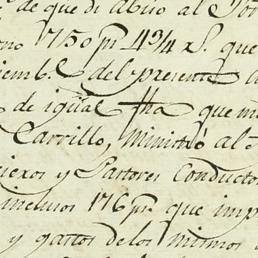 de que di abiso al
ono 1750 ps 4 3/4 Rs. que
iemb.e del presente
de igual fha que
Carrillo, Ministro al
iexos y Pastores Conducto
inclusos 176 ps. que imp
y gastos de los mismos